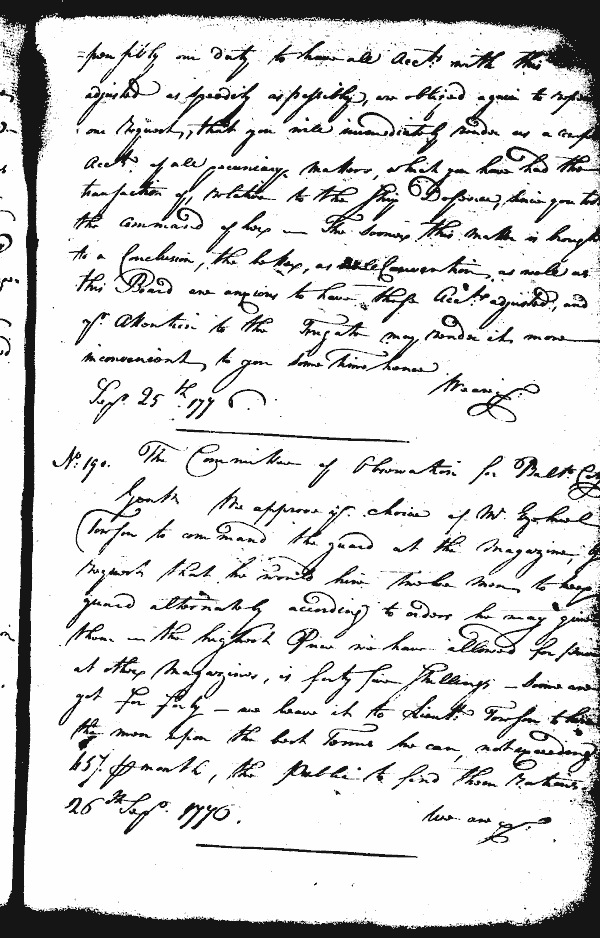 =pensibly our duty to have all Acc.ts with this
adjusted as speedily as possible, are obliged again to
our request, that you will immediately render us a
Acct. of all pecuniary matters, which you have had the
transaction of, relative to the Ship Defence, since you
the command of her — The sooner this matter is brough
to a Conclusion, the better, as Convention, as well as
this Board are anxious to have those Acc.ts adjusted, and
yr. Attention to the Frigate may render it more
inconvenient to you some time hence
We are &c.
Sept. 25th. 1776.
No. 190. The Committee of Observation for Balt. Co
Gentn. We approve yr. choice of Mr. Ezekiel
Towson to command the guard at the Magazine, &
request that he would hire twelve men to keep
guard alternately according to orders he may give
them — the highest Price we have allowed for
at other Magazines, is forty five Shillings — Some are
got for forty — we leave it to Lieut. Towson to hire
the men upon the best Terms he can, not exceeding
45/ ⅌ month, the Public to find them Rations.
26th Sept. 1776.
We are &c.